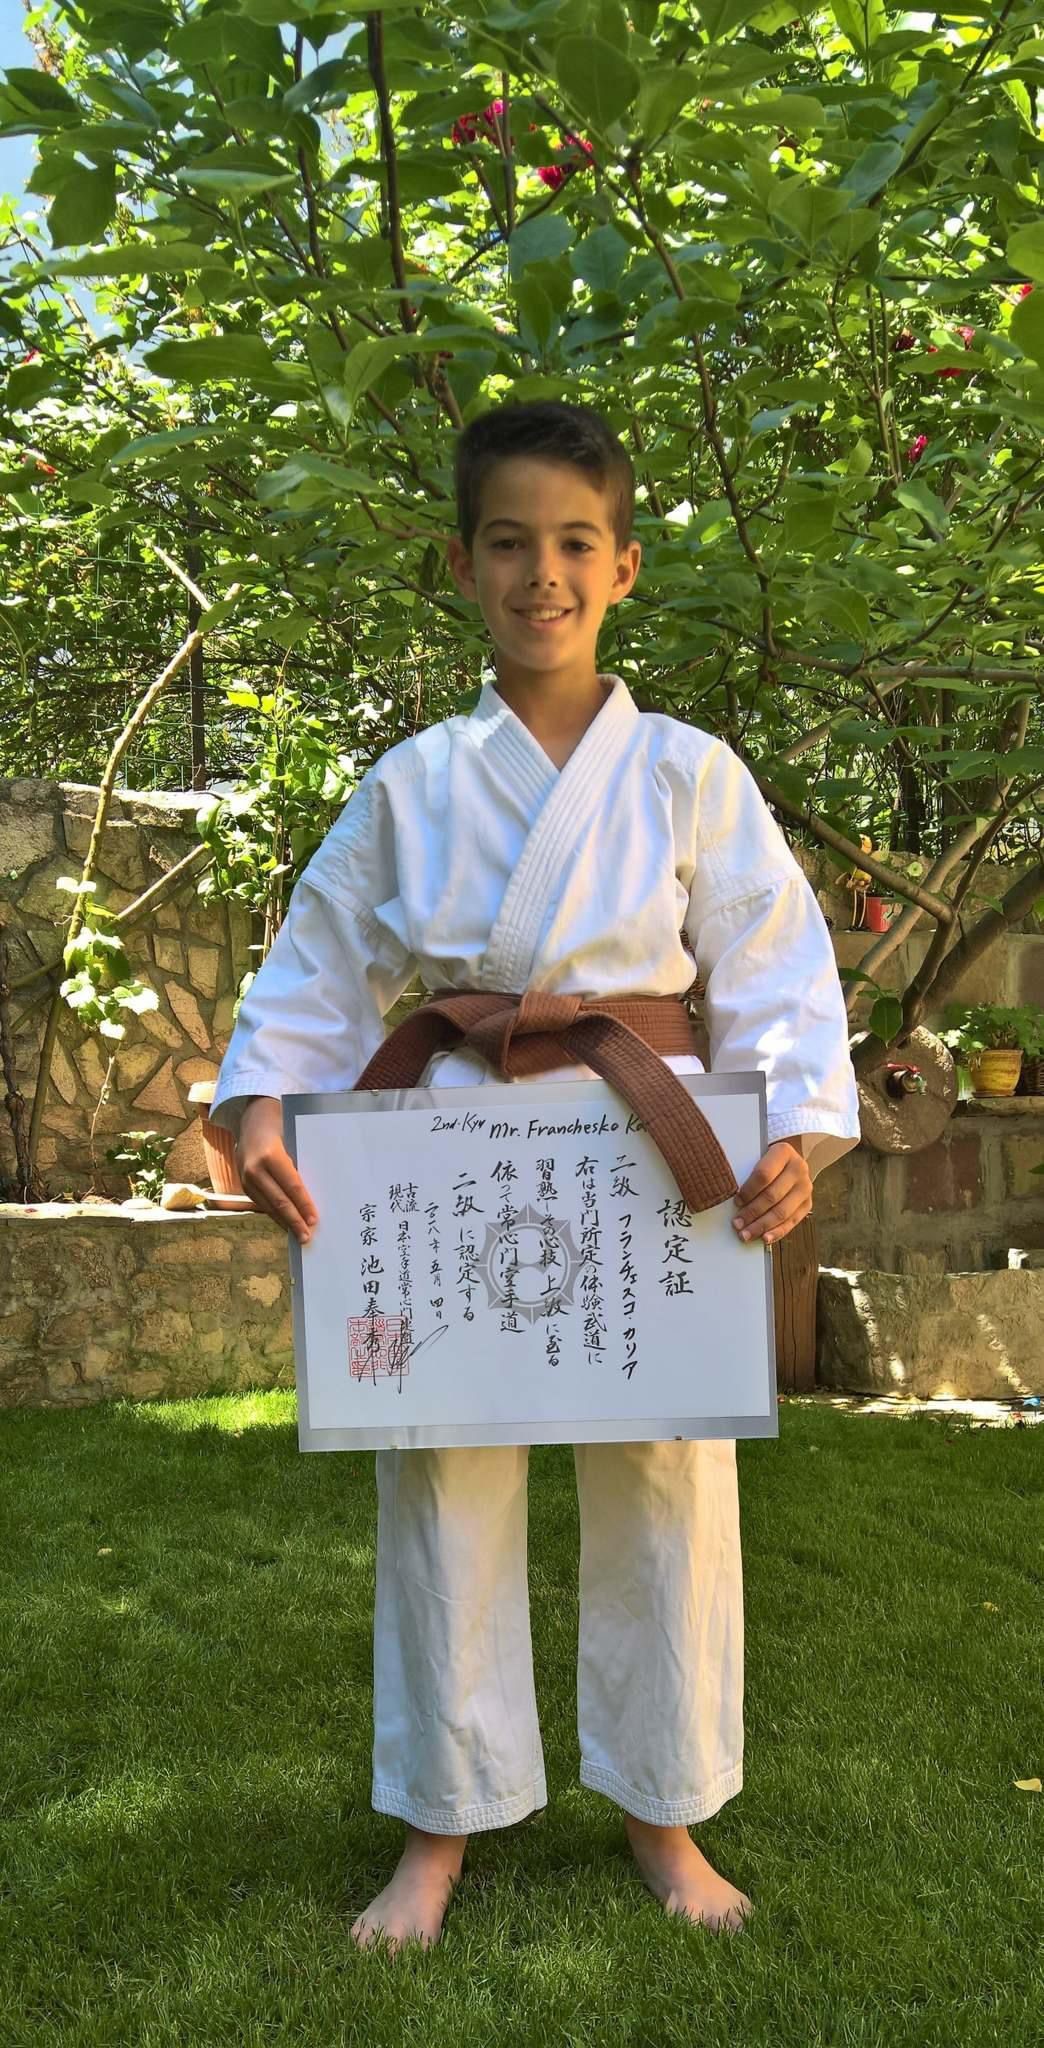 2nd. Kyu Mr. Franchesko
認定証
二級 フランチェスコ・カリア
右は当門所定の体験武道に
習熟しその心技上級に至る
依って常心門空手道
二級に認定する
二〇一八年五月四日
古流
現代 日本空手道常心門
宗家 池田奉秀